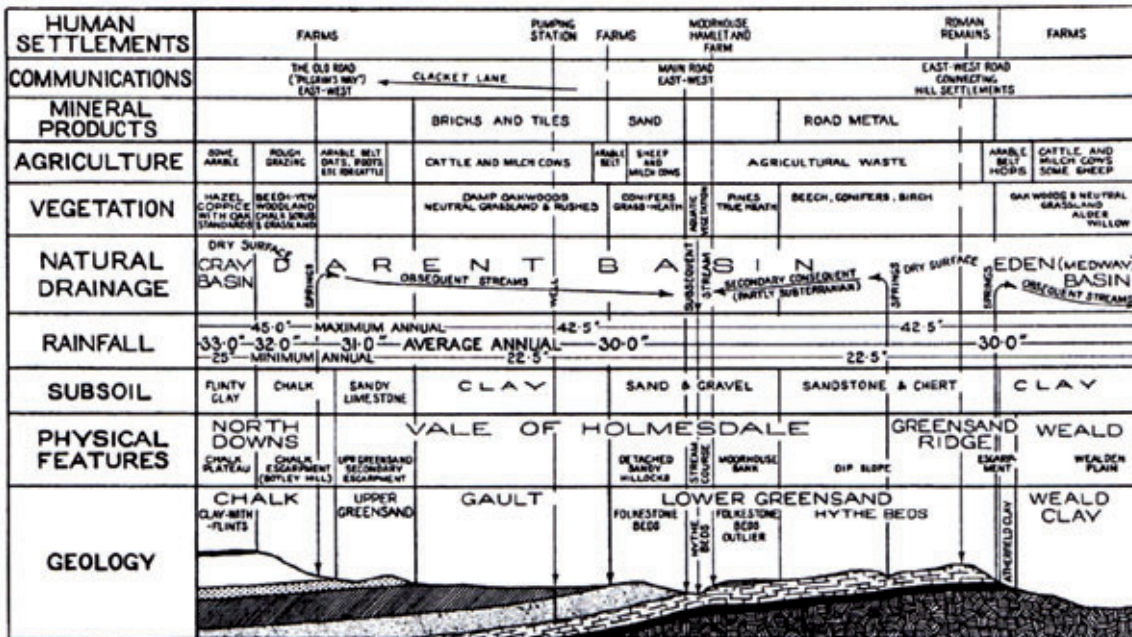 HUMAN
SETTLEMENTS
FARMS
PUMPING
STATION
FARMS
MOORHOUSE
HAMLET AND
FARM
ROMAN
REMAINS
FARMS
COMMUNICATIONS
THE OLD ROAD
("PILGRIM'S WAY")
EAST-WEST
CLACKET LANE
MAIN ROAD
EAST-WEST
EAST-WEST ROAD
CONNECTING
HILL SETTLEMENTS
MINERAL
PRODUCTS
BRICKS AND TILES
SAND
ROAD METAL
AGRICULTURE
SOME
ARABLE
ROUGH
GRAZING
ARABLE BELT
OATS, ROOTS
ETC FOR CATTLE
CATTLE AND MILCH COWS
ARABLE
BELT
SHEEP
AND
MILCH COWS
AGRICULTURAL WASTE
ARABLE
BELT
HOPS
CATTLE AND
MILCH COWS
SOME SHEEP
VEGETATION
HAZEL
COPPICE
WITH OAK
STANDARDS
BEECH-YEW
WOODLAND
CHALK SCRUB
& GRASSLAND
DAMP OAKWOODS
NEUTRAL GRASSLAND & RUSHES
CONIFERS
GRASS-HEATH
AQUATIC
VEGETATION
PINES
TRUE HEATH
BEECH, CONIFERS, BIRCH
OAKWOODS & NEUTRAL
GRASSLAND
ALDER
WILLOW
NATURAL
DRAINAGE
DRY SURFACE
CRAY
BASIN
DARENT BASIN
SPRINGS
OBSEQUENT STREAMS
WELL
SUBSEQUENT
STREAM
SECONDARY CONSEQUENT
(PARTLY SUBTERRANIAN)
SPRINGS
DRY SURFACE
SPRINGS
EDEN (MEDWAY)
BASIN
OBSEQUENT STREAMS
RAINFALL
45.0" MAXIMUM ANNUAL 42.5" 42.5"
33.0" 32.0" 31.0" AVERAGE ANNUAL 30.0" 30.0"
25" MINIMUM ANNUAL 22.5" 22.5"
SUBSOIL
FLINTY
CLAY
CHALK
SANDY
LIMESTONE
CLAY
SAND & GRAVEL
SANDSTONE & CHERT
CLAY
PHYSICAL
FEATURES
NORTH
DOWNS
VALE OF HOLMESDALE
GREENSAND
RIDGE
WEALD
CHALK
PLATEAU
CHALK
ESCARPMENT
(BOTLEY HILL)
UPR GREENSAND
SECONDARY
ESCARPMENT
DETACHED
SANDY
HILLOCKS
STREAM
COURSE
MOORHOUSE
BANK
DIP SLOPE
ESCARP-
MENT
WEALDEN
PLAIN
GEOLOGY
CHALK
CLAY-WITH
-FLINTS
UPPER
GREENSAND
GAULT
LOWER GREENSAND
FOLKESTONE
BEDS
HYTHE
BEDS
FOLKESTONE
BEDS
OUTLIER
HYTHE BEDS
ATHERFIELD CLAY
WEALD
CLAY